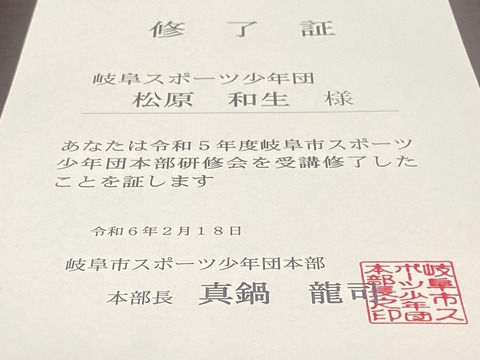 修了証
岐阜スポーツ少年団
松原 和生 様
あなたは令和5年度岐阜市スポーツ
少年団本部研修会を受講修了した
ことを証します
令和6年2月18日
岐阜市スポーツ少年団本部
本部長 真鍋 龍司
岐阜市ス
ポーツ少年団
本部長之印